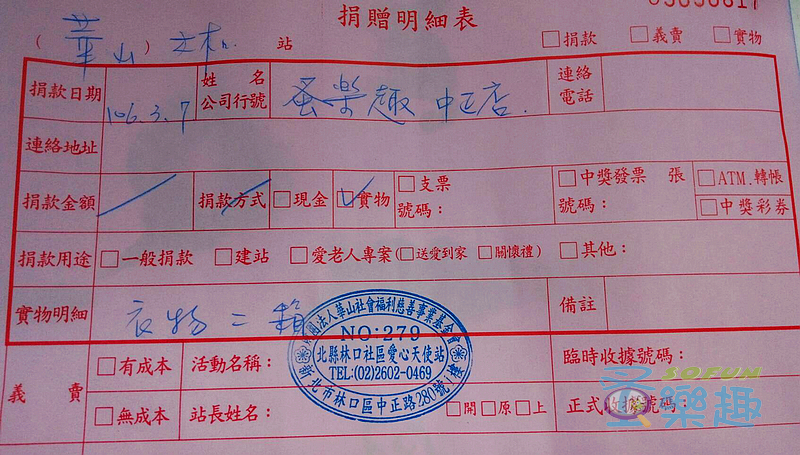 捐贈明細表
(華山)林口 站 □捐款 □義賣 □實物
捐款日期 106.3.7 姓名 公司行號 蚤樂趣 中正店 連絡電話
連絡地址
捐款金額 捐款方式 □現金 ☑實物 □支票號碼： □中獎發票 張 號碼： □ATM.轉帳 □中獎彩券
捐款用途 □一般捐款 □建站 □愛老人專案(□送愛到家 □關懷禮) □其他：
實物明細 衣物二箱 備註
義賣 □有成本 活動名稱： 臨時收據號碼：
□無成本 站長姓名： □開□原□上 正式收據號碼：
財團法人華山社會福利慈善事業基金會
NO:279
北縣林口社區愛心天使站
TEL:(02)2602-0469
新北市林口區中正路280號1樓
SOFUN
蚤樂趣